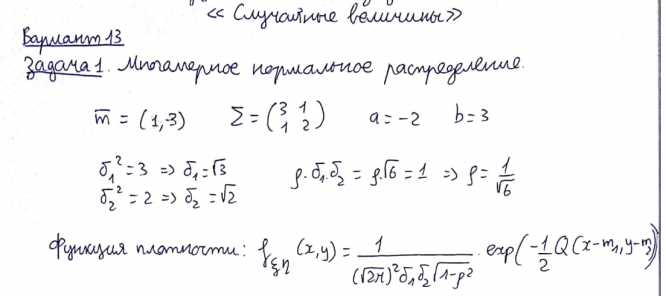 « Случайные величины»
Вариант 13
Задача 1. Многомерное нормальное распределение.
m̅ = (1,-3) Σ = (3 1 1 2) a = -2 b = 3
σ₁² = 3 => σ₁ = √3 ρ·σ₁·σ₂ = ρ·√6 = 1 => ρ = 1/√6
σ₂² = 2 => σ₂ = √2
Функция плотности: f_ξη (x,y) = 1/((√2π)² σ₁σ₂√1-ρ²) · exp(-1/2 Q(x-m₁, y-m₂))